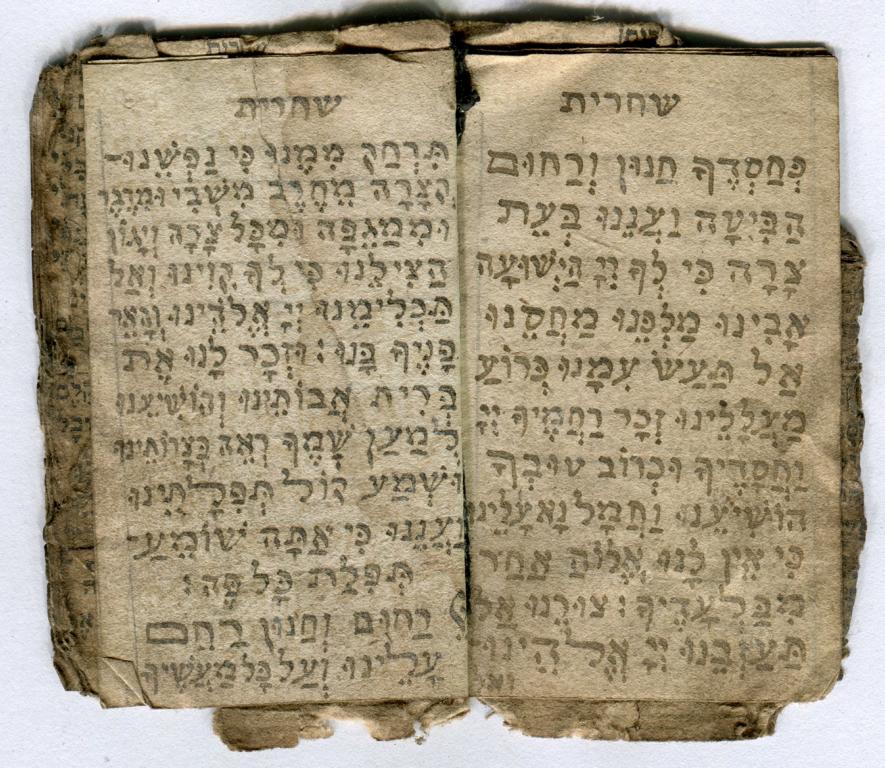 שחרית
כְּחַסְדֶךָ חַנוּן וְרַחוּם
הַבִּיטָה וַעֲנֵנוּ בְּעֵת
צָרָה כִּי לְךָ יְיָ הַיְשׁוּעָה
אָבִינוּ מַלְכֵּנוּ מַחֲסֵנוּ
אַל תַּעַשׂ עִמָנוּ כְּרוֹעַ
מַעֲלָלֵינוּ זְכָר רַחֲמֶיךָ יְיָ
וַחֲסָדֶיךָ וּכְרוֹב טוּבְךָ
הוֹשִׁיעֵנוּ וַחֲמָל נָא עָלֵינוּ
כִּי אֵין לָנוּ אֱלוֹהַ אַחַר
מִבַּלְעָדֶיךָ : צוּרֵנוּ אַל
תַּעַזְבֵנוּ יְיָ אֱלֹהֵינוּ
וְאַל
שחרית
תִּרְחַק מִמֶנוּ כִּי נַפְשֵׁנוּ
קְצָרָה מֵחֶרֶב מִשְׁבִי וּמִדֶבֶר
וּמִמַגֵפָה וּמִכָּל צָרָה וְיָגוֹן
הַצִילֵנוּ כִּי לְךָ קִוִינוּ וְאַל
תַּכְלִימֵנוּ יְיָ אֱלֹהֵינוּ וְהָאֵר
פָּנֶיךָ בָּנוּ : וּזְכָר לָנוּ אֶת
בְּרִית אֲבוֹתֵינוּ וְהוֹשִׁיעֵנוּ
לְמַעַן שְׁמֶךָ רְאֵה בְּצָרוֹתֵינוּ
וּשְׁמַע קוֹל תְּפִלָתֵינוּ
וַעֲנֵנוּ כִּי אַתָּה שׁוֹמֵעַ
תְּפִלַת כָּל פֶּה :
רַחוּם וְחַנוּן רַחֵם
עָלֵינוּ וְעַל כָּל מַעֲשֶׂיךָ